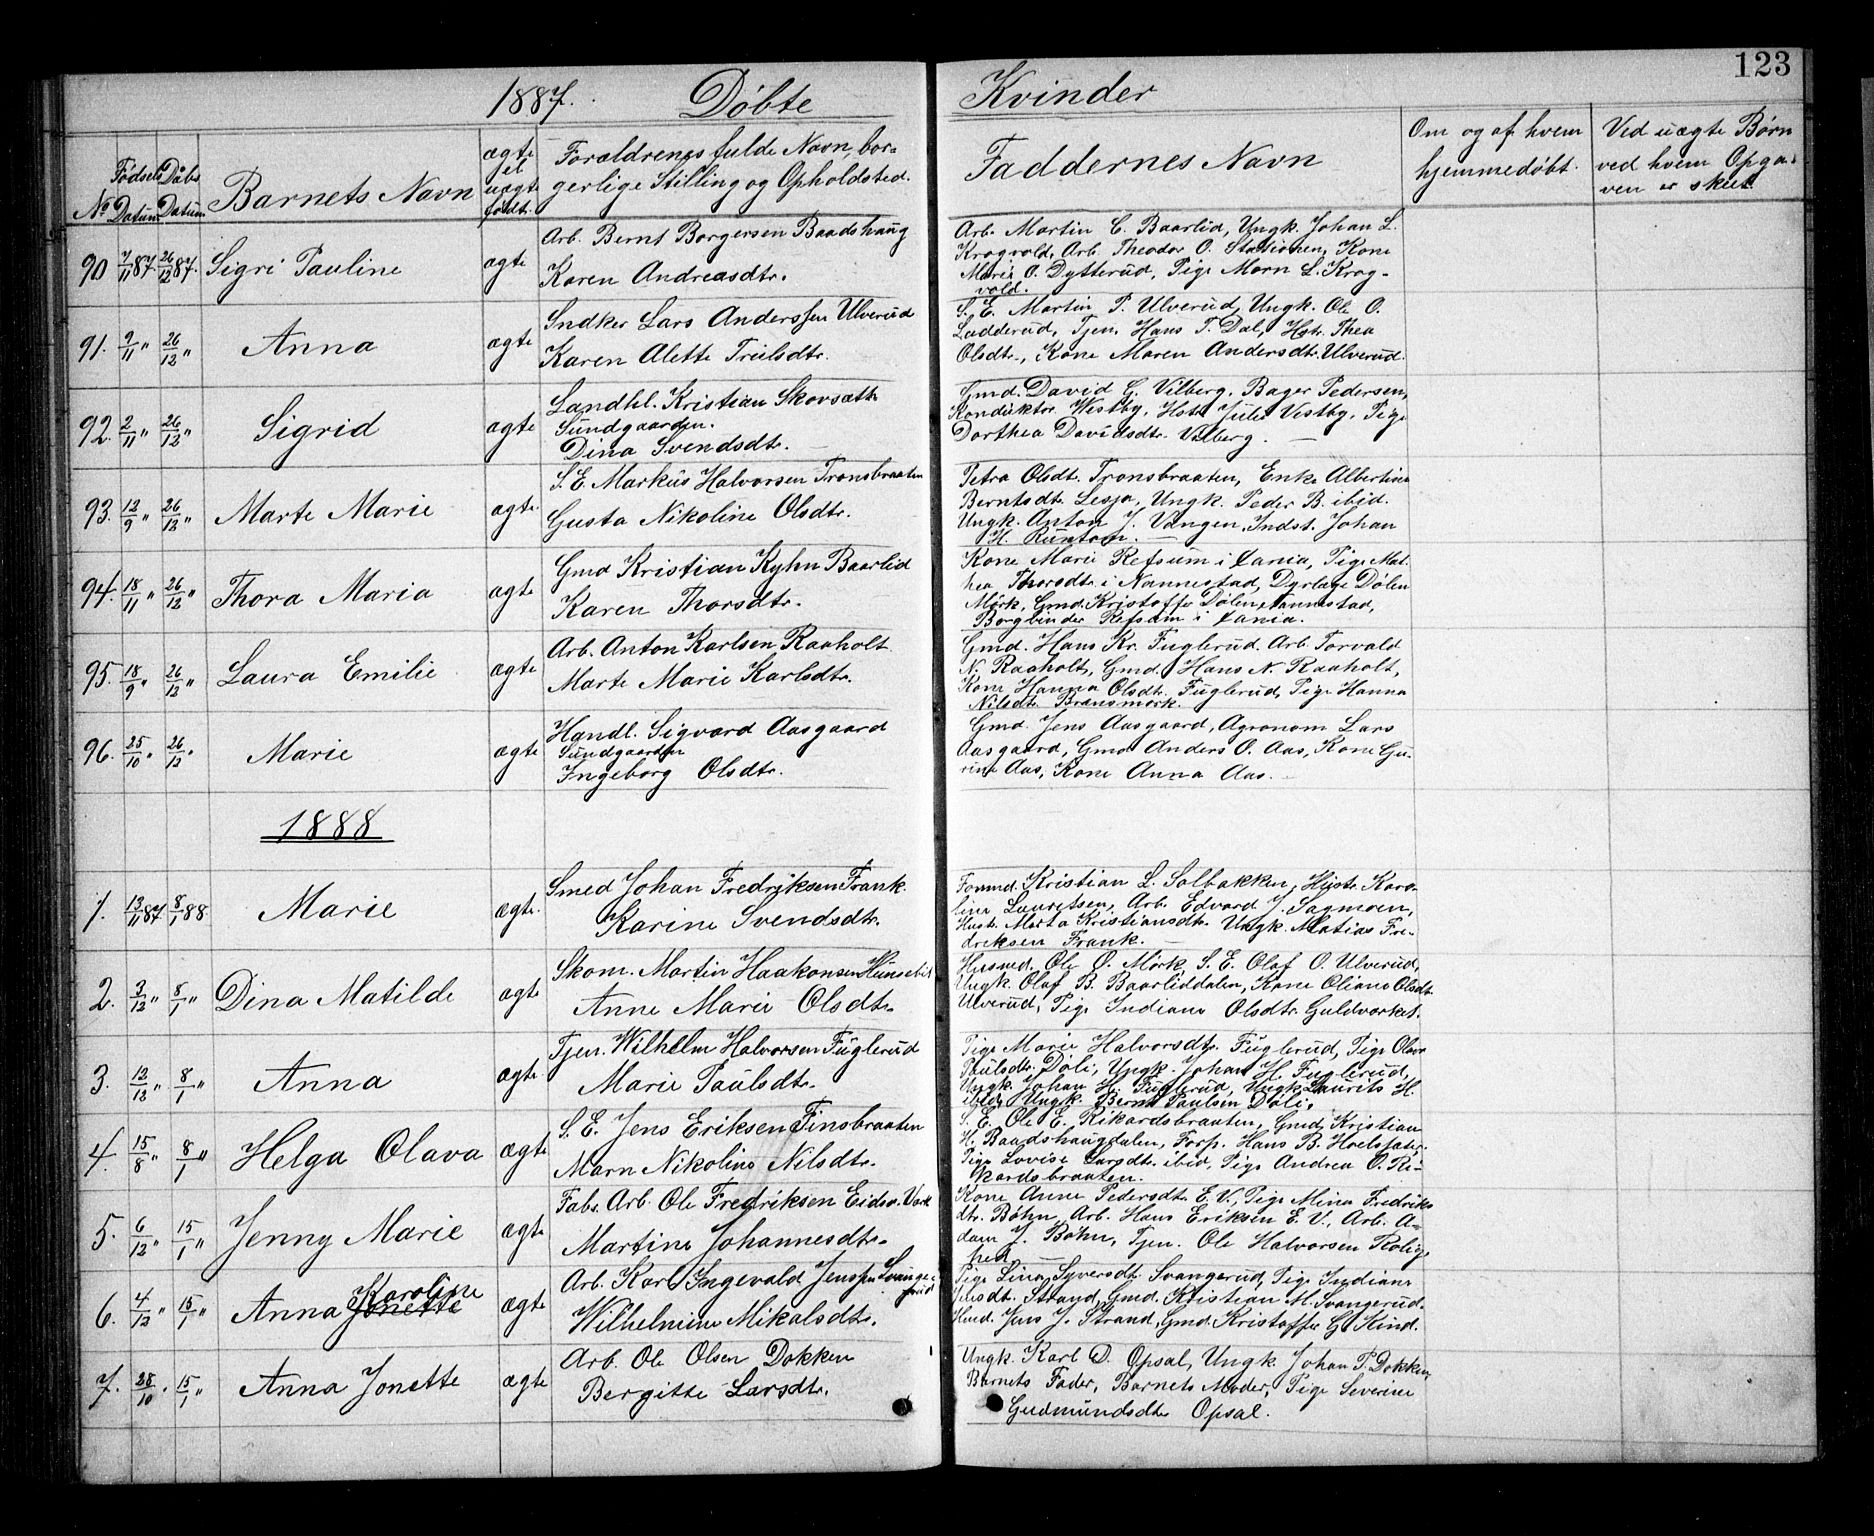 123
1887. Døbte Kvinder
No Fødsels Datum Døbs Datum Barnets Navn ægte el uægte født. Forældrenes fulde Navn, bor-
gerlige Stilling og Opholdsted.
Faddernes Navn
Om og af hvem
hjemmedøbt.
Ved uægte Børn
ved hvem Opga-
ven er skeet
90 7/11 87. 26/12 87. Sigri Pauline ægte
Arb. Bernt Borgersen Baadshaug
Karen Andreasdtr.
Arb. Martin C. Baarlid, Ungk. Johan L.
Krogvold, Arb. Theodor O. Stationen, Kone
Marie O. Dytterud, Pige Marn L. Krog-
vold.
91. 9/11 " 26/12 " Anna ægte
Indker Lars Anderssen Ulverud
Karen Alette Trulsdtr.
S. E. Martin P. Ulverud, Ungk. Ole O.
Ladderud, Tjen. Hans T. Dal, Hstr. Thea
Olsdtr., Kone Maren Andersdtr. Ulverud.
92. 2/11 " 26/12 " Sigrid ægte
Landhl. Kristian Skovsæth
Sundgaarden.
Dina Svendsdtr.
Gmd. David G. Vilberg, Bager Pedersen,
Konduktør Westby, Hstr. Julie Vestby, Pige
Dorthea Davidsdtr. Vilberg.
93. 12/9 " 26/12 " Marte Marie ægte
S. E. Markus Halvorsen Tronsbraaten
Gusta Nikoline Olsdtr.
Petra Olsdt. Tronsbraaten, Enke Albertine
Berntsdtr. Lesja, Ungk. Peder B. ibid.
Ungk. Anton J. Vangen, Indst. Johan
H. Runtom.
94. 18/11 " 26/12 " Thora Maria ægte
Gmd Kristian Kyhn Baarlid
Karen Thorsdtr.
Kone Marie Refsum i Xania, Pige Mat-
hea Thorsdtr. i Nannestad, Dyrlæge Dølen
Mörk, Gmd. Kristoffer Dølen, Nannestad,
Bogbinder Refsum i Xania.
95. 18/9 " 26/12 " Laura Emilie ægte
Arb. Anton Karlsen Raaholt
Marte Marie Karlsdtr.
Gmd. Hans Kr. Fuglerud, Arb. Torvald
N. Raaholt, Gmd. Hans N. Raaholt,
Kone Hanna Olsdtr. Fuglerud, Pige Hanna
Nilsdtr. Brensmork.
96. 25/10 " 26/12 " Marie ægte
Handl. Sigvard Aasgaard
Sundgaarden
Ingeborg Olsdtr.
Gmd. Jens Aasgaard, Agronom Lars
Aasgaard, Gmd. Anders O. Aas, Kone Gu-
rine Aas, Kone Anna Aas.
1888
1. 13/11 87 8/1 88 Marie ægte.
Smed Johan Fredriksen Frank.
Karine Svendsdtr.
Formd. Kristian L. Solbakken, Hustr. Karo-
line Lauretsen, Arb. Edvard J. Sagmoen,
Hustr. Marta Kristiansdtr. Ungk. Matias Fre-
driksen Frank.
2. 3/12 " 8/1 " Dina Matilde ægte
Skom. Martin Haakonsen Hunsebit
Anne Marie Olsdtr.
Husmd. Ole O. Mörk, S. E. Olaf O. Ulverud,
Ungk. Olaf B. Baarliddalen, Kone Oliane Olsdt.
Ulverud, Pige Indiane Olsdtr. Guldværket.
3. 12/12 " 8/1 " Anna ægte
Tjen. Wilhelm Halvorsen Fuglerud
Marie Paulsdtr.
Pige Marie Halvorsdtr. Fuglerud, Pige Olava
Paulsdtr. Döli, Ungk. Johan H. Fuglerud,
Ungk. Johan H. Fuglerud, Ungk. Laurits H.
ibid, Ungk. Bernt Paulsen Döli.
4. 15/8 " 8/1 " Helga Olava ægte
S. E. Jens Eriksen Finsbraaten
Marn Nikoline Nilsdtr.
S. E. Ole E. Rikardsbraaten, Gmd. Kristian
H. Baadshaugdalen, Forp. Hans B. Hoelstad,
Pige Lovise Larsdtr. ibid, Pige Andrea O. Ri-
kardsbraaten.
5. 6/12 " 15/1 " Jenny Marie ægte
Fabr. Arb. Ole Fredriksen Eidsv. Værk
Martine Johannesdtr.
Kone Anne Pedersdtr. E. V., Pige Mina Fredriks
dtr. Böhn, Arb. Hans Eriksen E. V., Arb. A-
dam J. Böhn, Tjen. Ole Halvorsen Rolig-
hed
6. 4/12 " 15/1 " Anna Jonette Karoline ægte
Arb. Karl Ingevald Jenssen Svange-
rud
Wilhelmine Mikalsdtr.
Pige Lina Syversdtr. Svangerud, Pige Indiane
Jensdt. Strand, Gmd. Kristian M. Svangerud.
Husmd. Jens J. Strand, Gmd. Kristoffer G. Kind.
7. 28/10 " 15/1 " Anna Jonette ægte
Arb. Ole Olsen Dokken
Bergitte Larsdtr.
Ungk. Karl D. Opsal, Ungk. Johan P. Dokken
Barnets Fader, Barnets Moder, Pige Severine
Gudmundsdtr. Opsal.